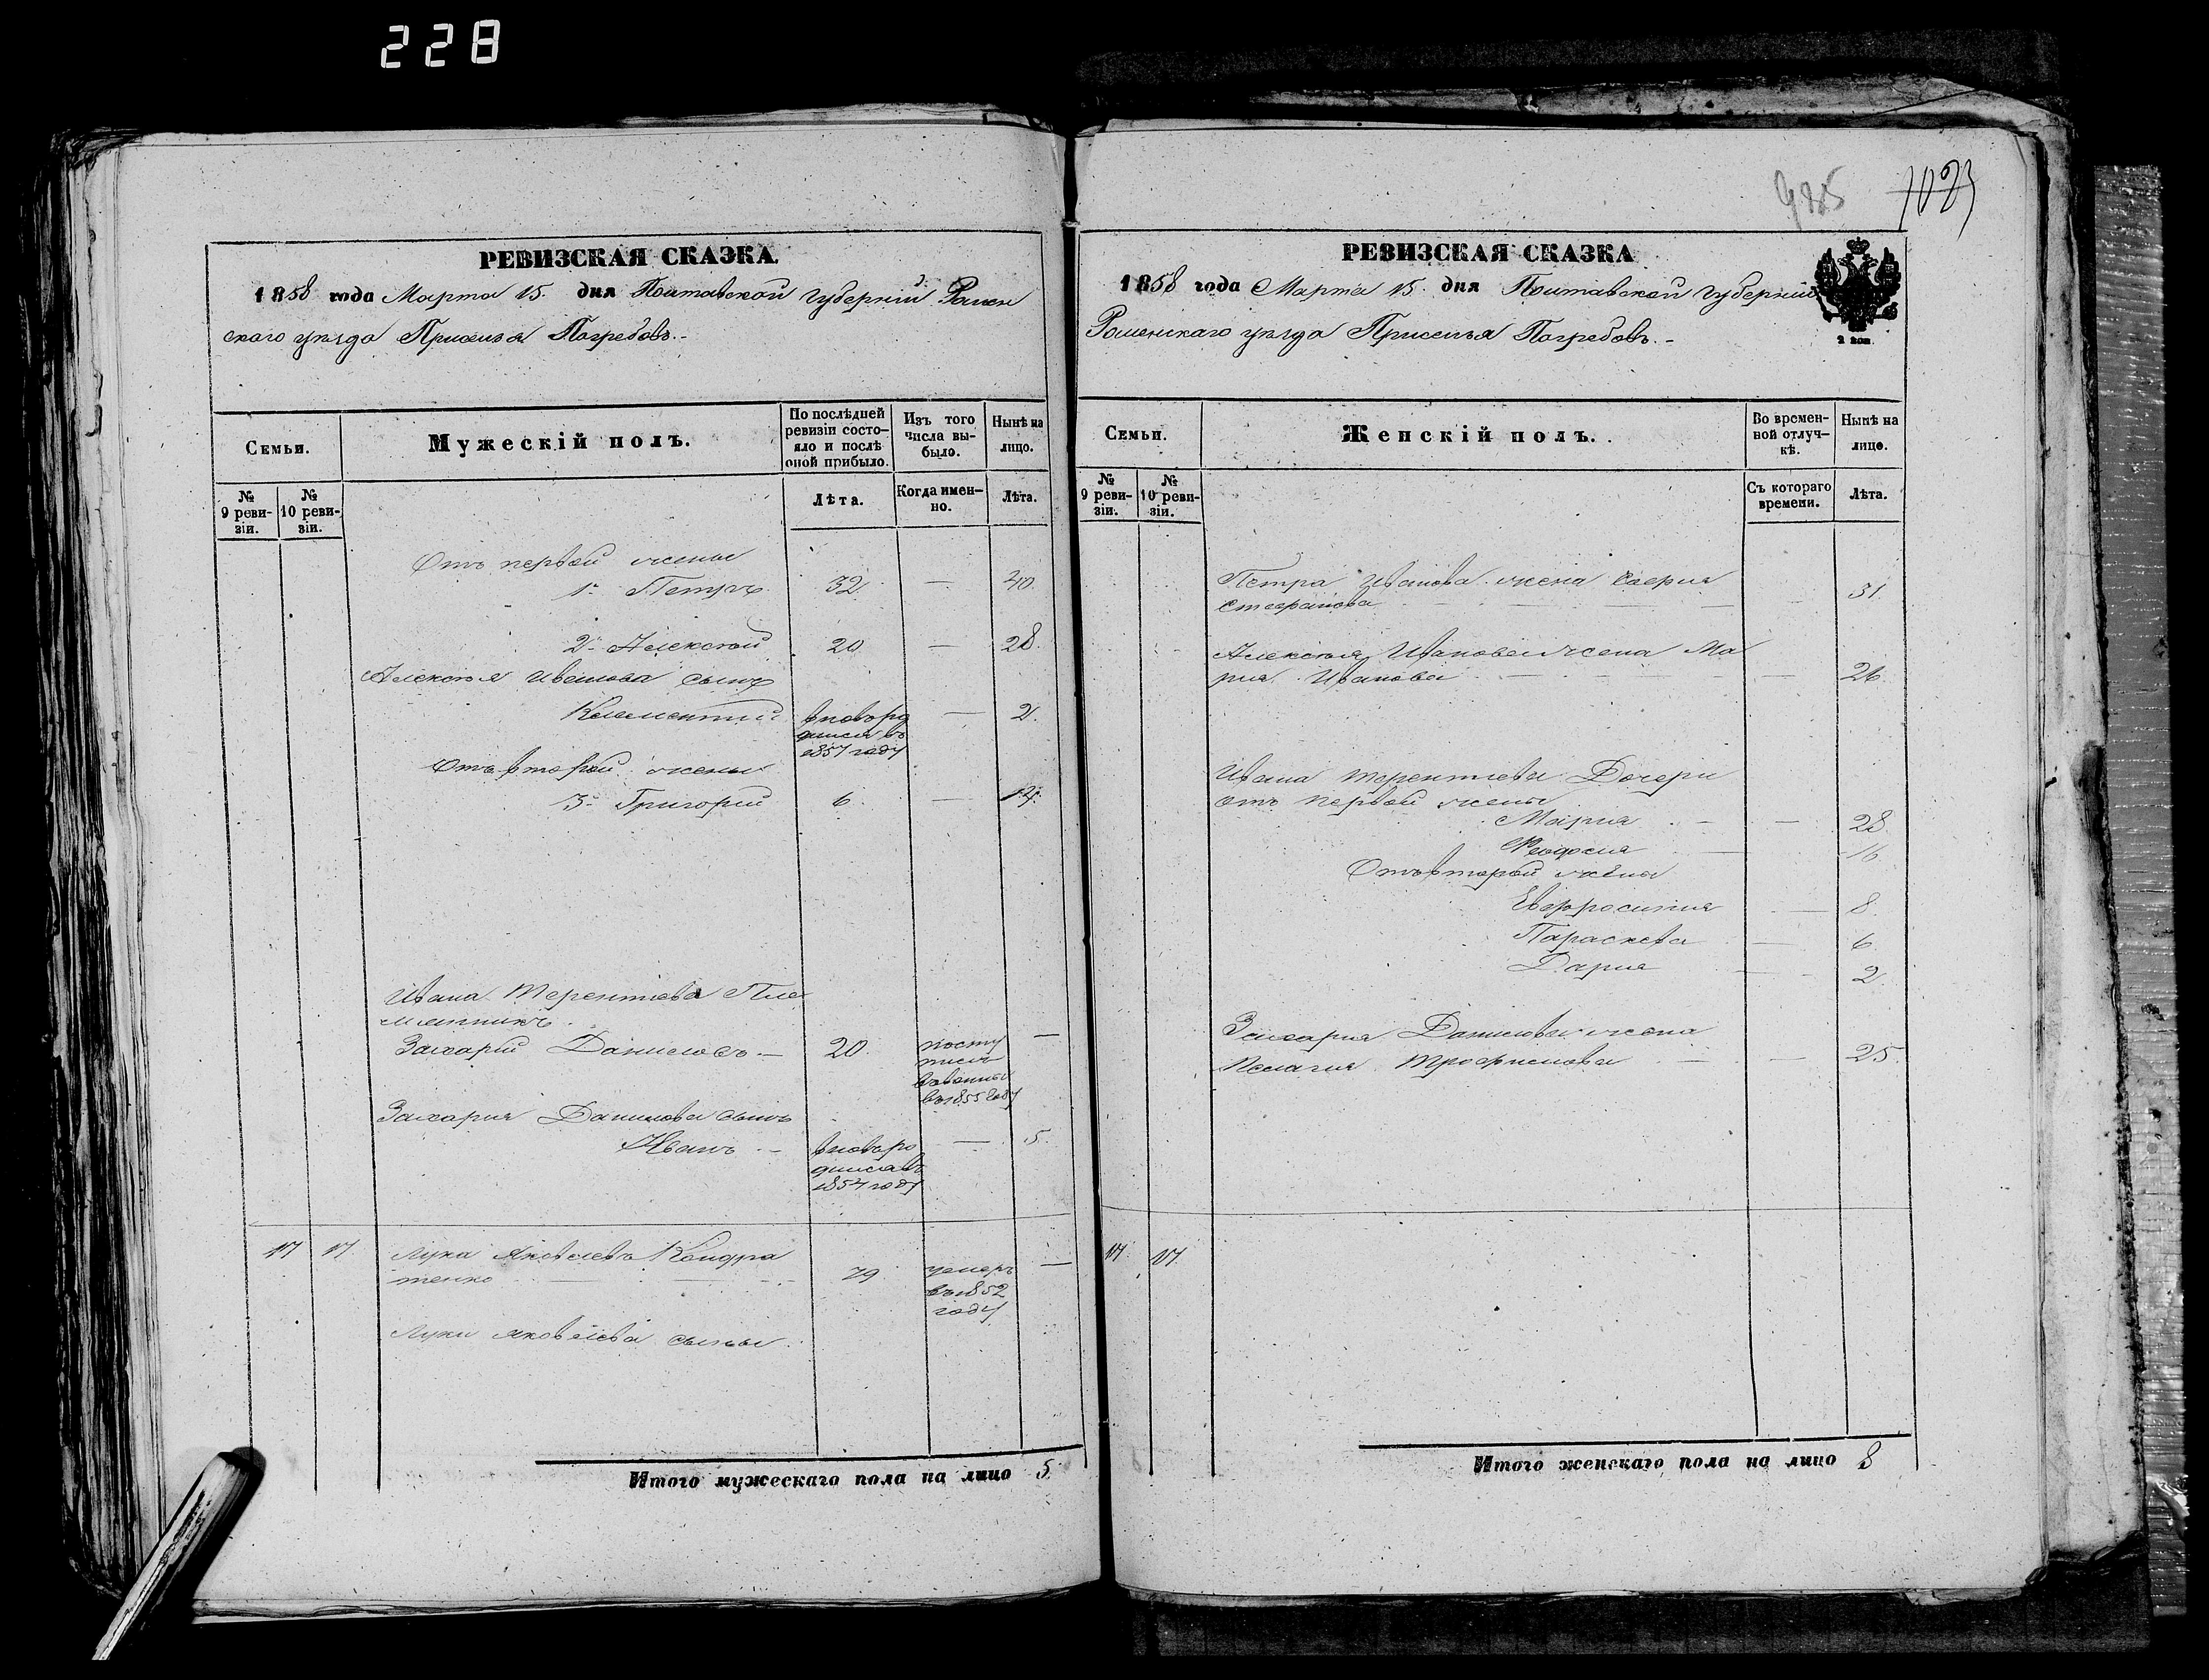 228
985 1023
РЕВИЗСКАЯ СКАЗКА.
1858 года Марта 15. дня Полтавской губерніи Ромен
скаго уѣзда Приселья Погребовъ.-
Семьи.
Мужескій полъ.
По послѣдней
ревизіи состо-
яло и послѣ
оной прибыло.
Изъ того
числа вы-
было.
Нынѣ на
лицо.
№
9 реви-
зіи.
№
10 реви-
зіи.
Лѣта.
Когда имен-
но.
Лѣта.
Отъ первой жены
1- Петръ 32 — 40.
2- Алексѣй 20 — 28.
Алексѣя Иванова сынъ
Климентий вновь ро — 2.
дился въ
1857 году
Отъ второй жены
3- Григорій 6. — 14.
Ивана Терентіева Пле
мянникъ
Захарій Даниловъ — 20. посту —
пилъ
въ 1855 году
Захарія Данилова сынъ
Иванъ — вновь ро — 5.
дился въ
1854 году
17 17 Лука Яковлевъ Кондра
тенко 79 умеръ —
въ 1852
году
Луки Яковлева сыны
Итого мужескаго пола на лицо 5.
РЕВИЗСКАЯ СКАЗКА
1858 года Марта 15. дня Полтавской губерніи
Роменскаго уѣзда Приселья Погребовъ.-
2 коп.
Семьи.
Женскій полъ.
Во времен-
ной отлуч-
кѣ.
Нынѣ на
лице.
№
9 реви-
зіи.
№
10 реви-
зіи.
Съ котораго
времени.
Лѣта.
Петра Иванова жена
Стефанова — 31.
Алексѣя Иванова жена Ма
рия Иванова — 26
Ивана Терентіева Дочери
отъ первой жены
Мария — 28.
Феодосия — 16
Отъ второй жены
Евфросиния — 8.
Параскева — 6
Дария — 2
Захария Данилова жена
Пелагия Трофимова — 25.
17. 17.
Итого женскаго пола на лицо 8